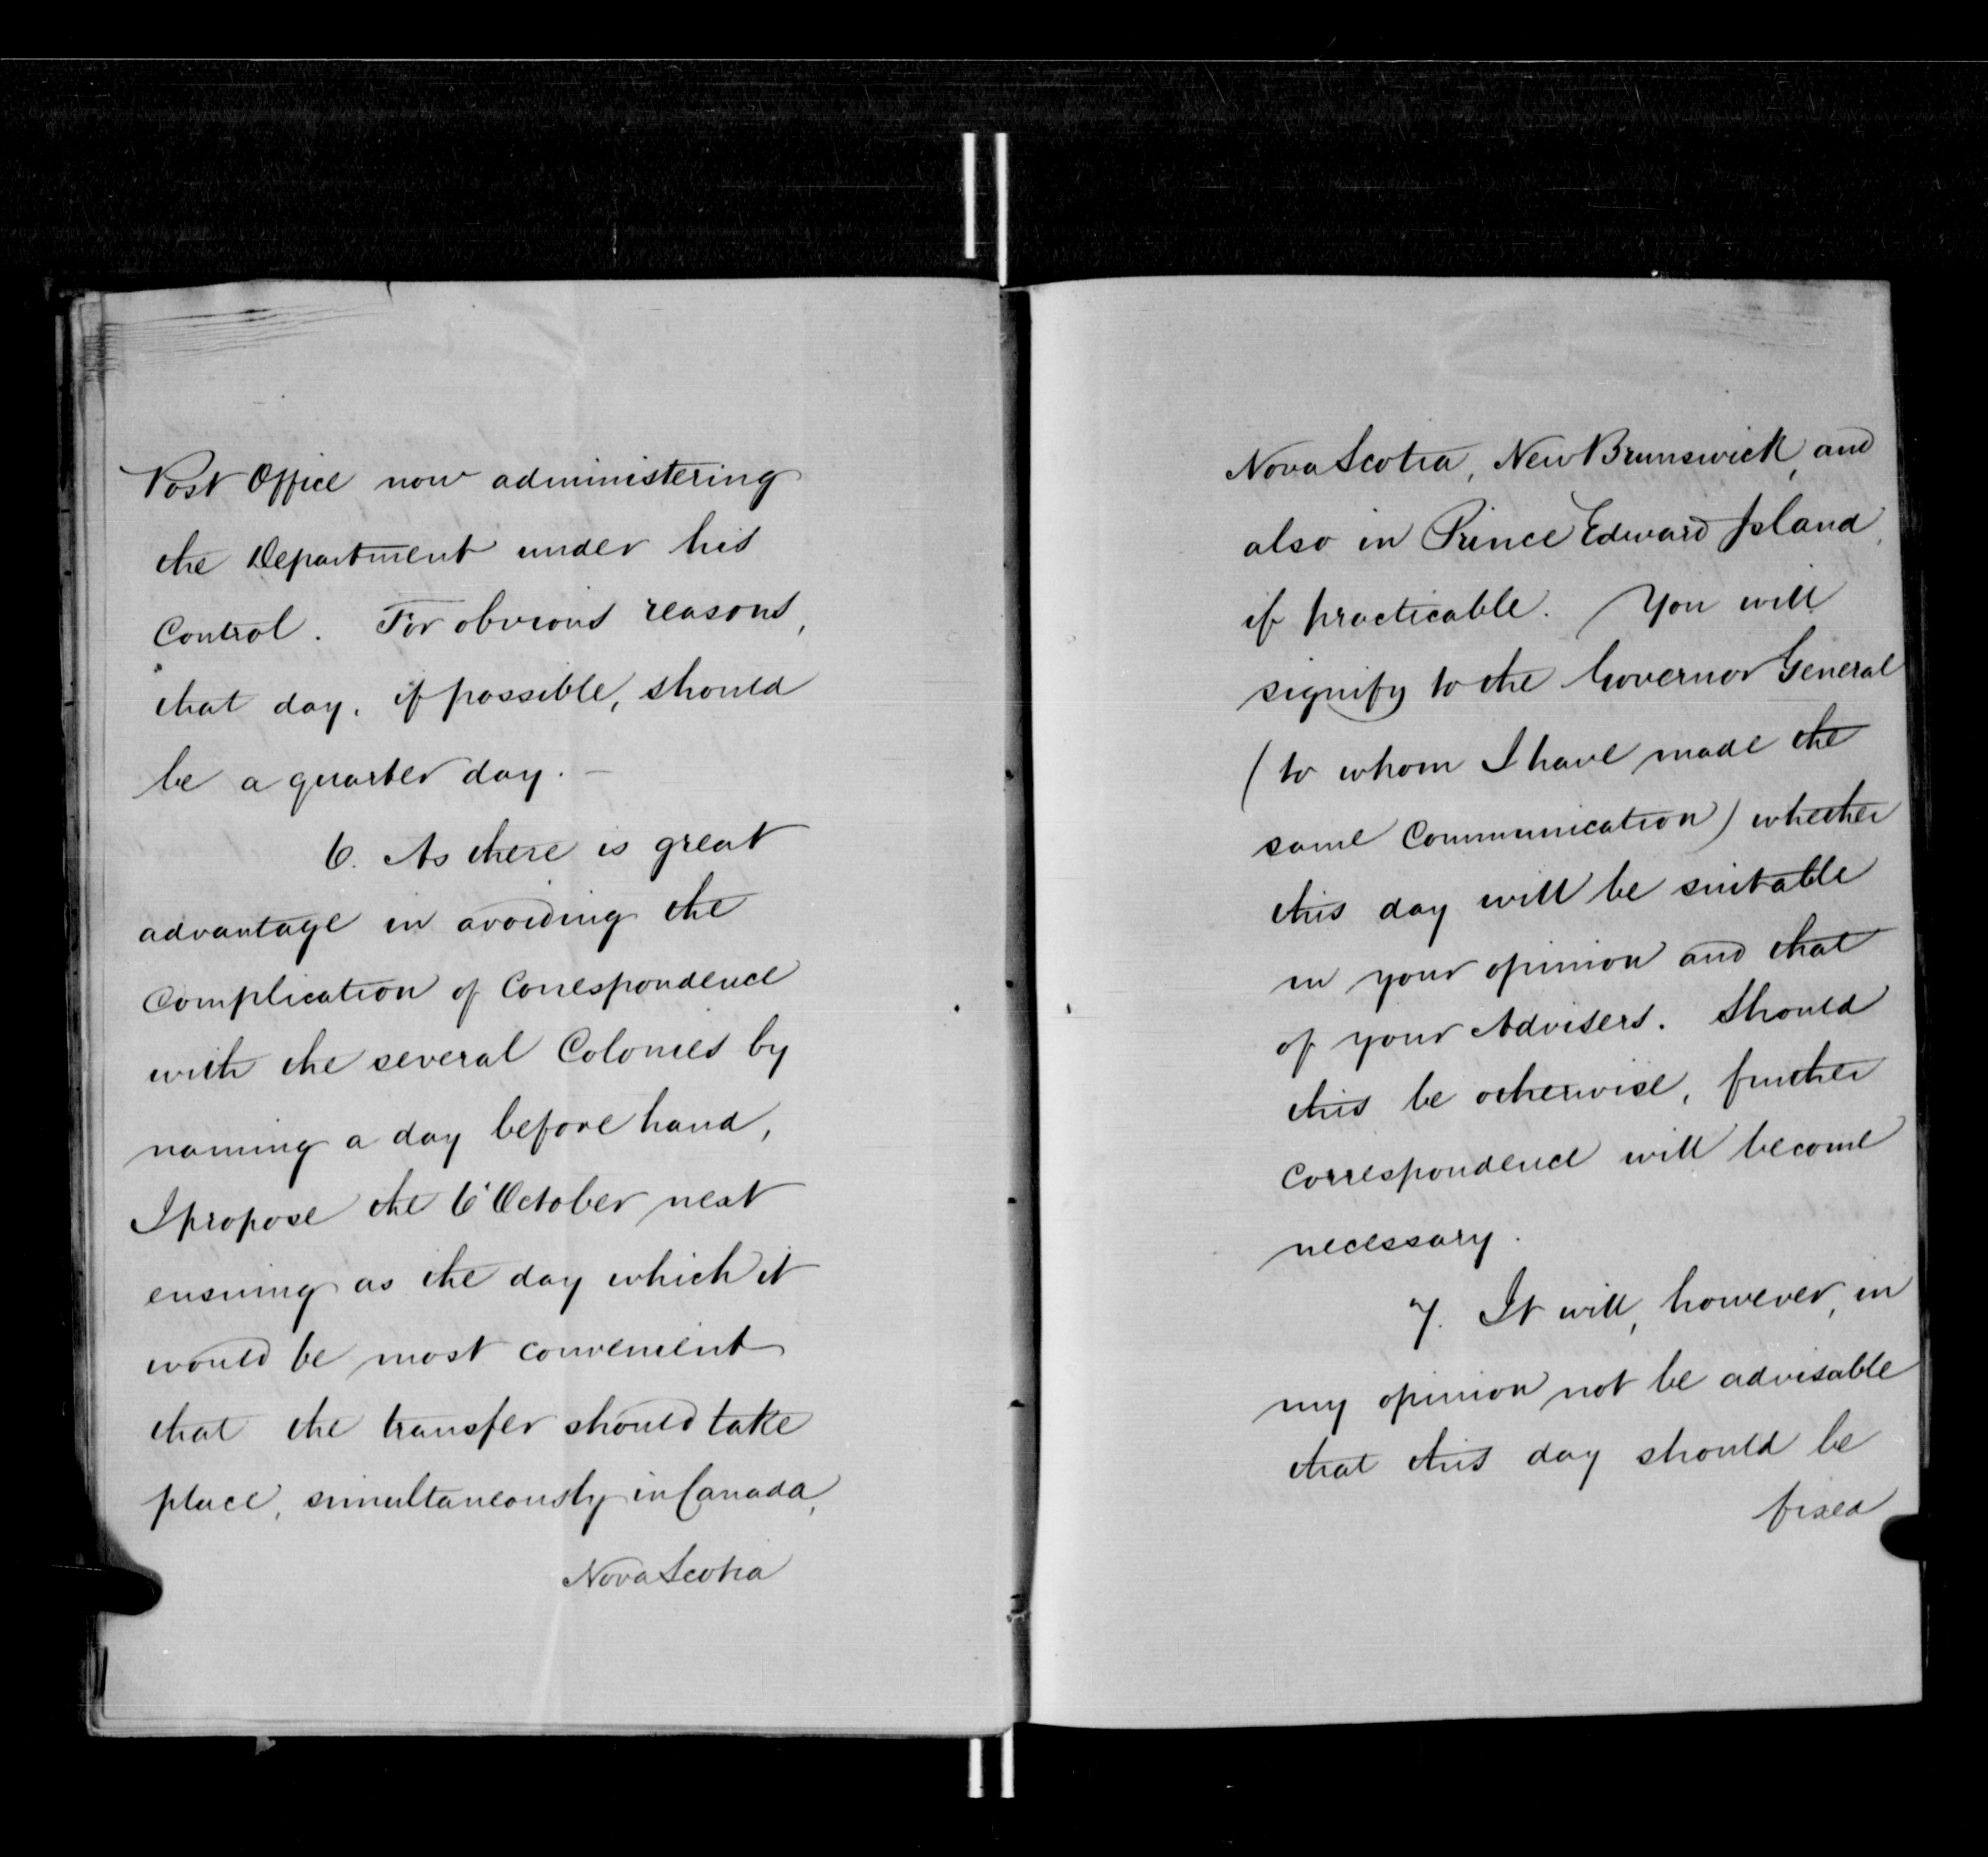 Post Office now administering
the Department under his
Control. For obvious reasons,
that day, if possible, should
be a quarter day. —
6. As there is great
advantage in avoiding the
Complication of Correspondence
with the several Colonies by
naming a day before hand,
I propose the 6 October next
ensuing as the day which it
would be most convenient
that the transfer should take
place, simultaneously in Canada,
Nova Scotia
Nova Scotia, New Brunswick, and
also in Prince Edward Island,
if practicable. You will
signify to the Governor General
(to whom I have made the
same Communication) whether
this day will be suitable
in your opinion and that
of your Advisers. Should
this be otherwise, further
Correspondence will become
necessary.
7. It will, however, in
my opinion not be advisable
that this day should be
fixed